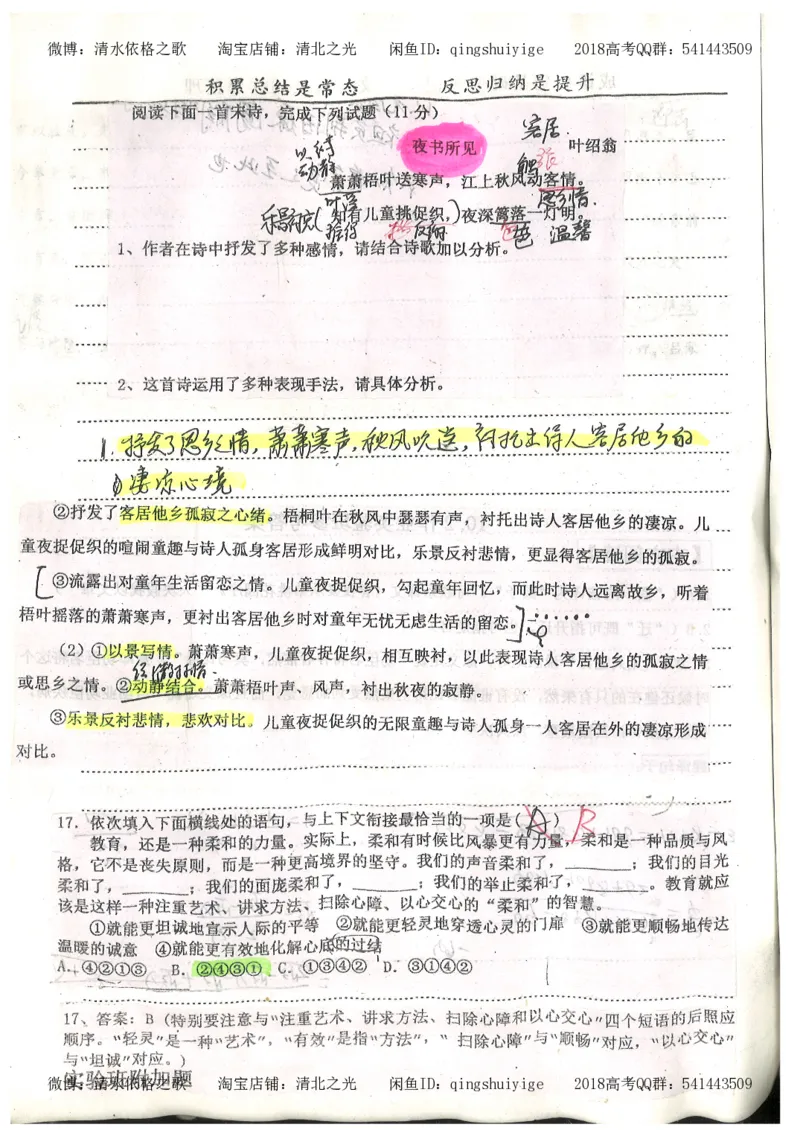 微博：清水依格之歌 淘宝店铺：清北之光 闲鱼ID：qingshuiyige 2018高考QQ群：541443509
积累总结是常态 反思归纳是提升
阅读下面一首宋诗，完成下列试题（11分）
客居.
以诗 夜书所见 叶绍翁
动静 触 张
萧萧梧叶送寒声，江上秋风动客情。
叶落 思乡情.
知有儿童挑促织，夜深篱落一灯明。
推敲 反衬 色 温馨
1、作者在诗中抒发了多种感情，请结合诗歌加以分析。
2、这首诗运用了多种表现手法，请具体分析。
1. 抒发了思乡之情，萧萧寒声，秋风吹送，衬托出诗人客居他乡的
凄凉心境
②抒发了客居他乡孤寂之心绪。梧桐叶在秋风中瑟瑟有声，衬托出诗人客居他乡的凄凉。儿
童夜捉促织的喧闹童趣与诗人孤身客居形成鲜明对比，乐景反衬悲情，更显得客居他乡的孤寂。
③流露出对童年生活留恋之情。儿童夜捉促织，勾起童年回忆，而此时诗人远离故乡，听着
梧叶摇落的萧萧寒声，更衬出客居他乡时对童年无忧无虑生活的留恋。
（2）①以景写情。萧萧寒声，儿童夜捉促织，相互映衬，以此表现诗人客居他乡的孤寂之情
或思乡之情。②动静结合。萧萧梧叶声、风声，衬出秋夜的寂静。
③乐景反衬悲情，悲欢对比。儿童夜捉促织的无限童趣与诗人孤身一人客居在外的凄凉形成
对比。
17．依次填入下面横线处的语句，与上下文衔接最恰当的一项是（ A ） B
教育，还是一种柔和的力量。实际上，柔和有时候比风暴更有力量，柔和是一种品质与风
格，它不是丧失原则，而是一种更高境界的坚守。我们的声音柔和了，______；我们的目光
柔和了，______；我们的面庞柔和了，______；我们的举止柔和了，______。教育就应
该是这样一种注重艺术、讲求方法、扫除心障、以心交心的“柔和”的智慧。
①就能更坦诚地宣示人际的平等 ②就能更轻灵地穿透心灵的门扉 ③就能更顺畅地传达
温暖的诚意 ④就能更有效地化解心底的过结
A．④②①③ B．②④③① C．①③④② D．③①④②
17、答案：B（特别要注意与“注重艺术、讲求方法、扫除心障和以心交心”四个短语的后照应
顺序。“轻灵”是一种“艺术”，“有效”是指“方法”，“扫除心障”与“顺畅”对应，“以心交心”
与“坦诚”对应。）
实验班附加题
微博：清水依格之歌 淘宝店铺：清北之光 闲鱼ID：qingshuiyige 2018高考QQ群：541443509